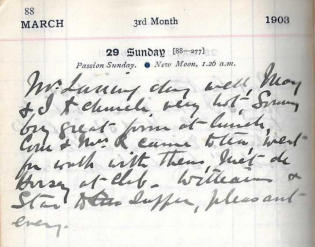 88
MARCH 3rd Month 1903
29 Sunday [88—277]
Passion Sunday. ● New Moon, 1.26 a.m.
day well, May
& I to church, very hot,
great form at lunch
& Mrs. came to tea, went
for walk with them, met de
Horsey at club. Williams &
Star to supper, pleasant
eveng.